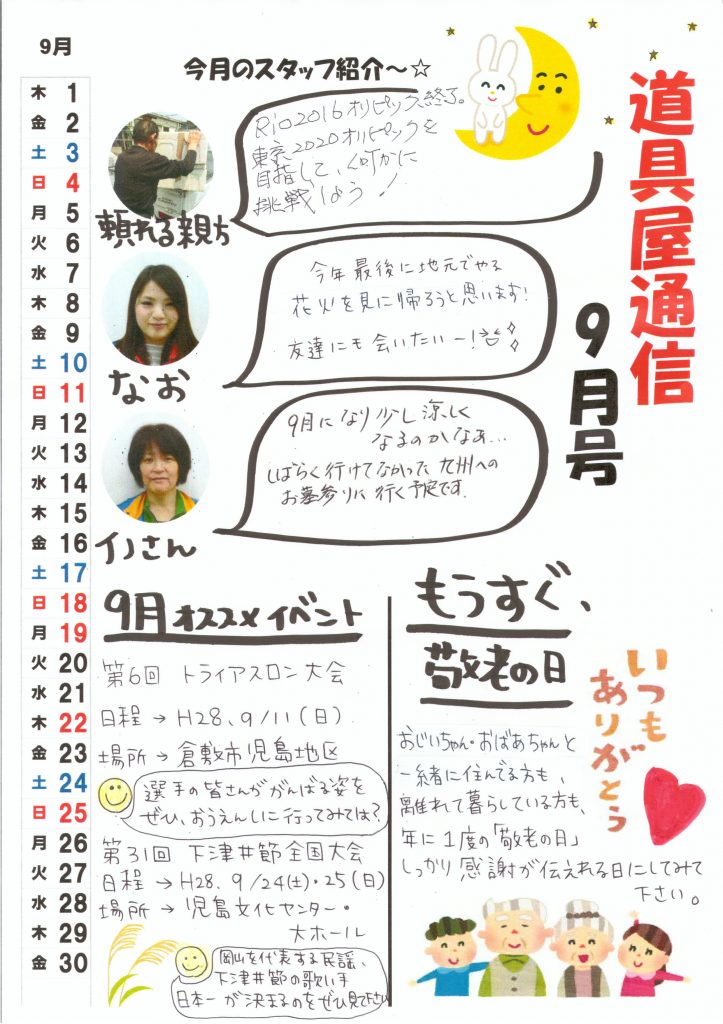 道具屋通信
9月号
9月
木 1
金 2
土 3
日 4
月 5
火 6
水 7
木 8
金 9
土 10
日 11
月 12
火 13
水 14
木 15
金 16
土 17
日 18
月 19
火 20
水 21
木 22
金 23
土 24
日 25
月 26
火 27
水 28
木 29
金 30
今月のスタッフ紹介～☆
Rio2016オリンピック終了。
東京2020オリンピックを
目指して、何かに
挑戦しよう!
頼れる親方
今年最後に地元でやる
花火を見に帰ろうと思います!
友達にも会いたいー!
なお
9月になり少し涼しく
なるのかなあ…
しばらく行けてなかった九州への
お墓参りに行く予定です.
イノさん
9月オススメイベント
第6回 トライアスロン大会
日程→H28.9/11(日)
場所→倉敷市児島地区
選手の皆さんががんばる姿を
ぜひ、おうえんしに行ってみては?
第31回 下津井節全国大会
日程→H28.9/24(土)・25(日)
場所→児島文化センター・
大ホール
岡山を代表する民謡、
下津井節の歌い手
日本一が決まるのをぜひ見て下さい
もうすぐ、
敬老の日
いつも
ありがとう
おじいちゃん・おばあちゃんと
一緒に住んでる方も、
離れて暮らしている方も、
年に1度の「敬老の日」
しっかり感謝が伝えれる日にしてみて
下さい。